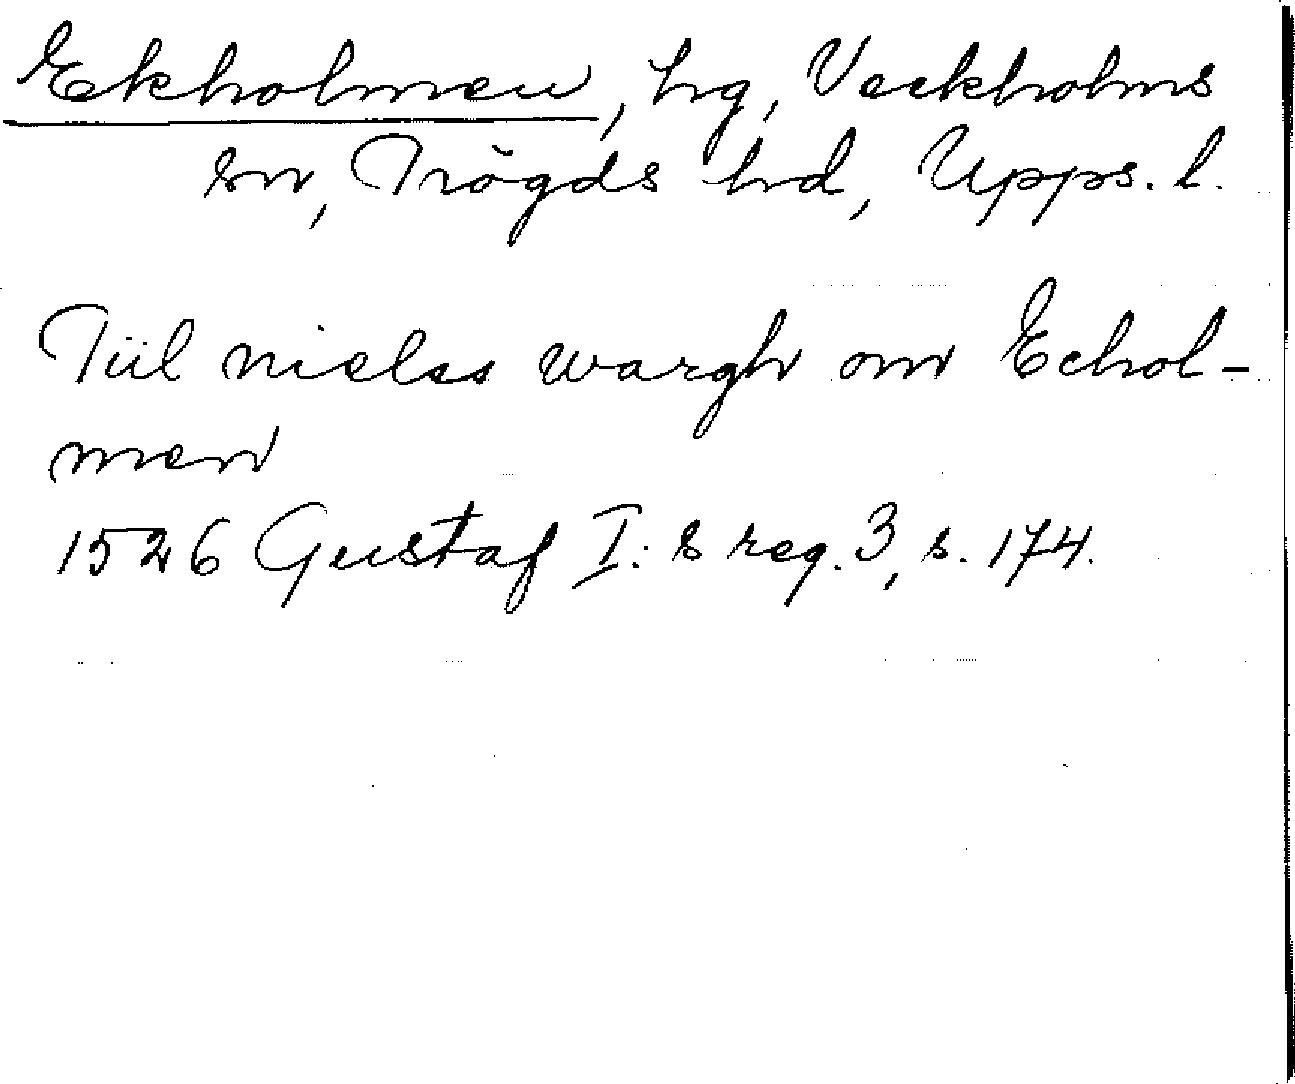 Ekholmen, hg, Veckholms
sn, Trögds hd, Upps. l.
Tiil nielss wargh om Echol-
men
1526 Gustaf I:s reg. 3, s. 174.